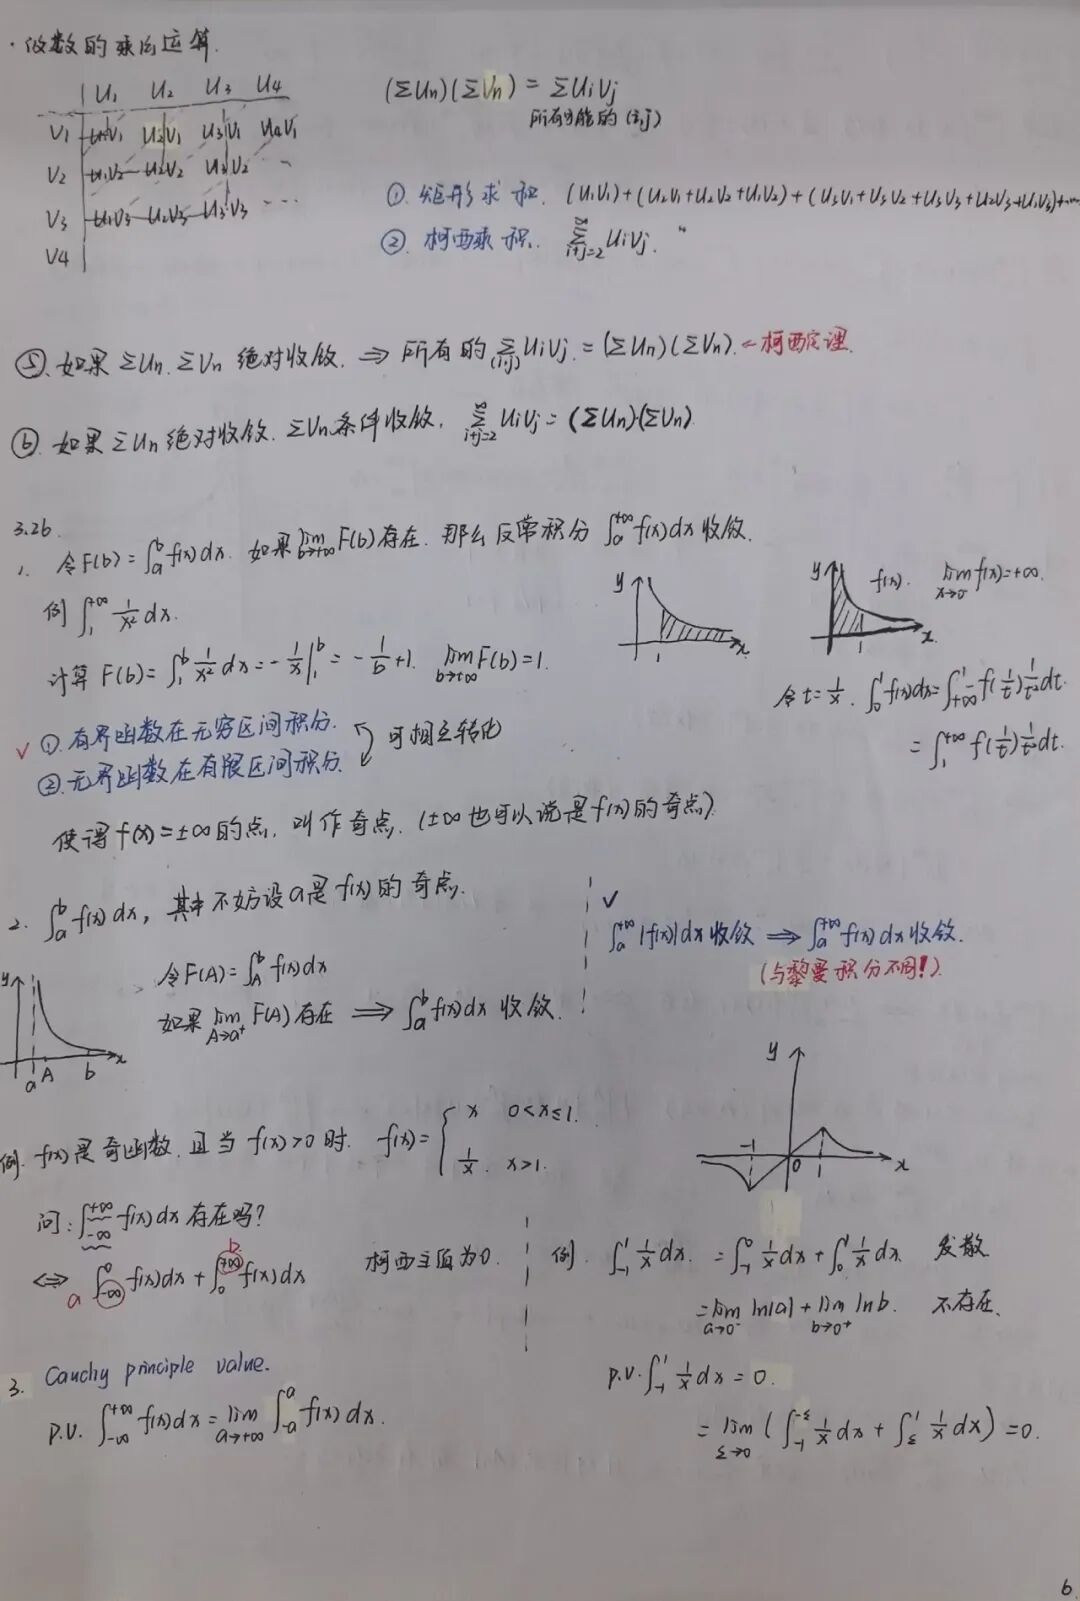 ·级数的乘法运算.
U₁ U₂ U₃ U₄
V₁ U₁V₁ U₂V₁ U₃V₁ U₄V₁
V₂ U₁V₂ U₂V₂ U₃V₂ ···
V₃ U₁V₃ U₂V₃ U₃V₃ ···
V₄
(ΣUn)(ΣVn) = ΣUiVj
所有可能的(i,j)
①. 矩形求和. (U₁V₁)+(U₂V₁+U₂V₂+U₁V₂)+(U₃V₁+U₃V₂+U₃V₃+U₂V₃+U₁V₃)+···
②. 柯西乘积. Σ_{i+j=2}^{∞} UiVj.
⑤. 如果ΣUn.ΣVn绝对收敛. ⇒ 所有的Σ_{(i,j)}UiVj.=(ΣUn)(ΣVn). ←柯西定理.
⑥. 如果ΣUn绝对收敛.ΣVn条件收敛, Σ_{i+j=2}^{∞} UiVj=(ΣUn)·(ΣVn).
3.26.
1. 令F(b)=∫_a^b f(x)dx. 如果lim_{b→+∞}F(b)存在. 那么反常积分 ∫_a^{+∞} f(x)dx收敛.
例 ∫_1^{+∞} 1/x² dx.
y 1 x
y f(x). lim_{x→0} f(x)=+∞. 1 x.
计算F(b)=∫_1^b 1/x² dx=-1/x|_1^b=-1/b+1. lim_{b→+∞}F(b)=1.
令t=1/x. ∫_0^1 f(x)dx=∫_{+∞}^1 -f(1/t)1/t²dt.
=∫_1^{+∞} f(1/t)1/t²dt.
√ ①.有界函数在无穷区间积分.
②.无界函数在有限区间积分.
可相互转化
使得f(x)=±∞的点, 叫作奇点. (±∞也可以说是f(x)的奇点).
2. ∫_a^b f(x)dx, 其中不妨设a是f(x)的奇点.
y a A b x
令F(A)=∫_A^b f(x)dx
如果lim_{A→a⁺}F(A)存在 ⇒ ∫_a^b f(x)dx收敛.
√
∫_a^{+∞}|f(x)|dx收敛 ⇒ ∫_a^{+∞}f(x)dx收敛.
(与黎曼积分不同!).
例. f(x)是奇函数.且当f(x)>0时. f(x)={x 0<x≤1. 1/x. x>1.
y -1 0 1 x
问:∫_{-∞}^{+∞}f(x)dx存在吗?
⇔ a ∫_{-∞}^0 f(x)dx+∫_0^{+∞} f(x)dx b
柯西主值为0.
例. ∫_{-1}^1 1/x dx. =∫_{-1}^0 1/x dx+∫_0^1 1/x dx. 发散.
=lim_{a→0⁻}ln|a|+lim_{b→0⁺}lnb. 不存在.
P.V.∫_{-1}^1 1/x dx=0.
=lim_{ε→0}(∫_{-1}^{-ε} 1/x dx+∫_ε^1 1/x dx)=0.
3. Cauchy principle value.
P.V. ∫_{-∞}^{+∞}f(x)dx=lim_{a→+∞}∫_{-a}^a f(x)dx.
6.